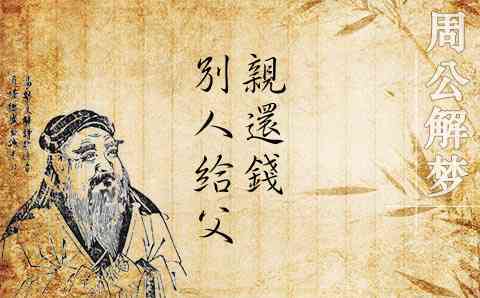 周公解梦
別人給父
親還錢